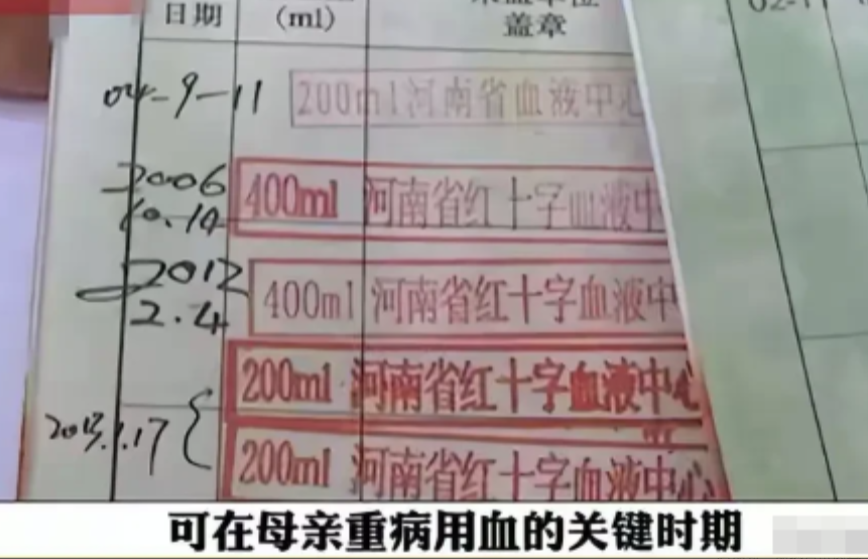 日期
(ml)
盖章
04-9-11
200ml河南省血液中心
2006
10.14
400ml 河南省红十字血液中
2012
2.4
400ml 河南省红十字血液中
200ml 河南省红十字血液中心
2013.1.17
200ml 河南省红十字血液中心
可在母亲重病用血的关键时期